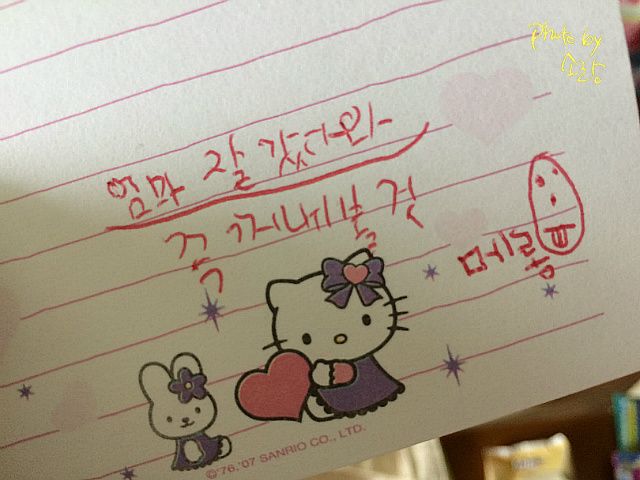 photo by
소랑
엄마 잘 갔다와
꼭 꺼내볼 것
메롱
©'76,'07 SANRIO CO., LTD.